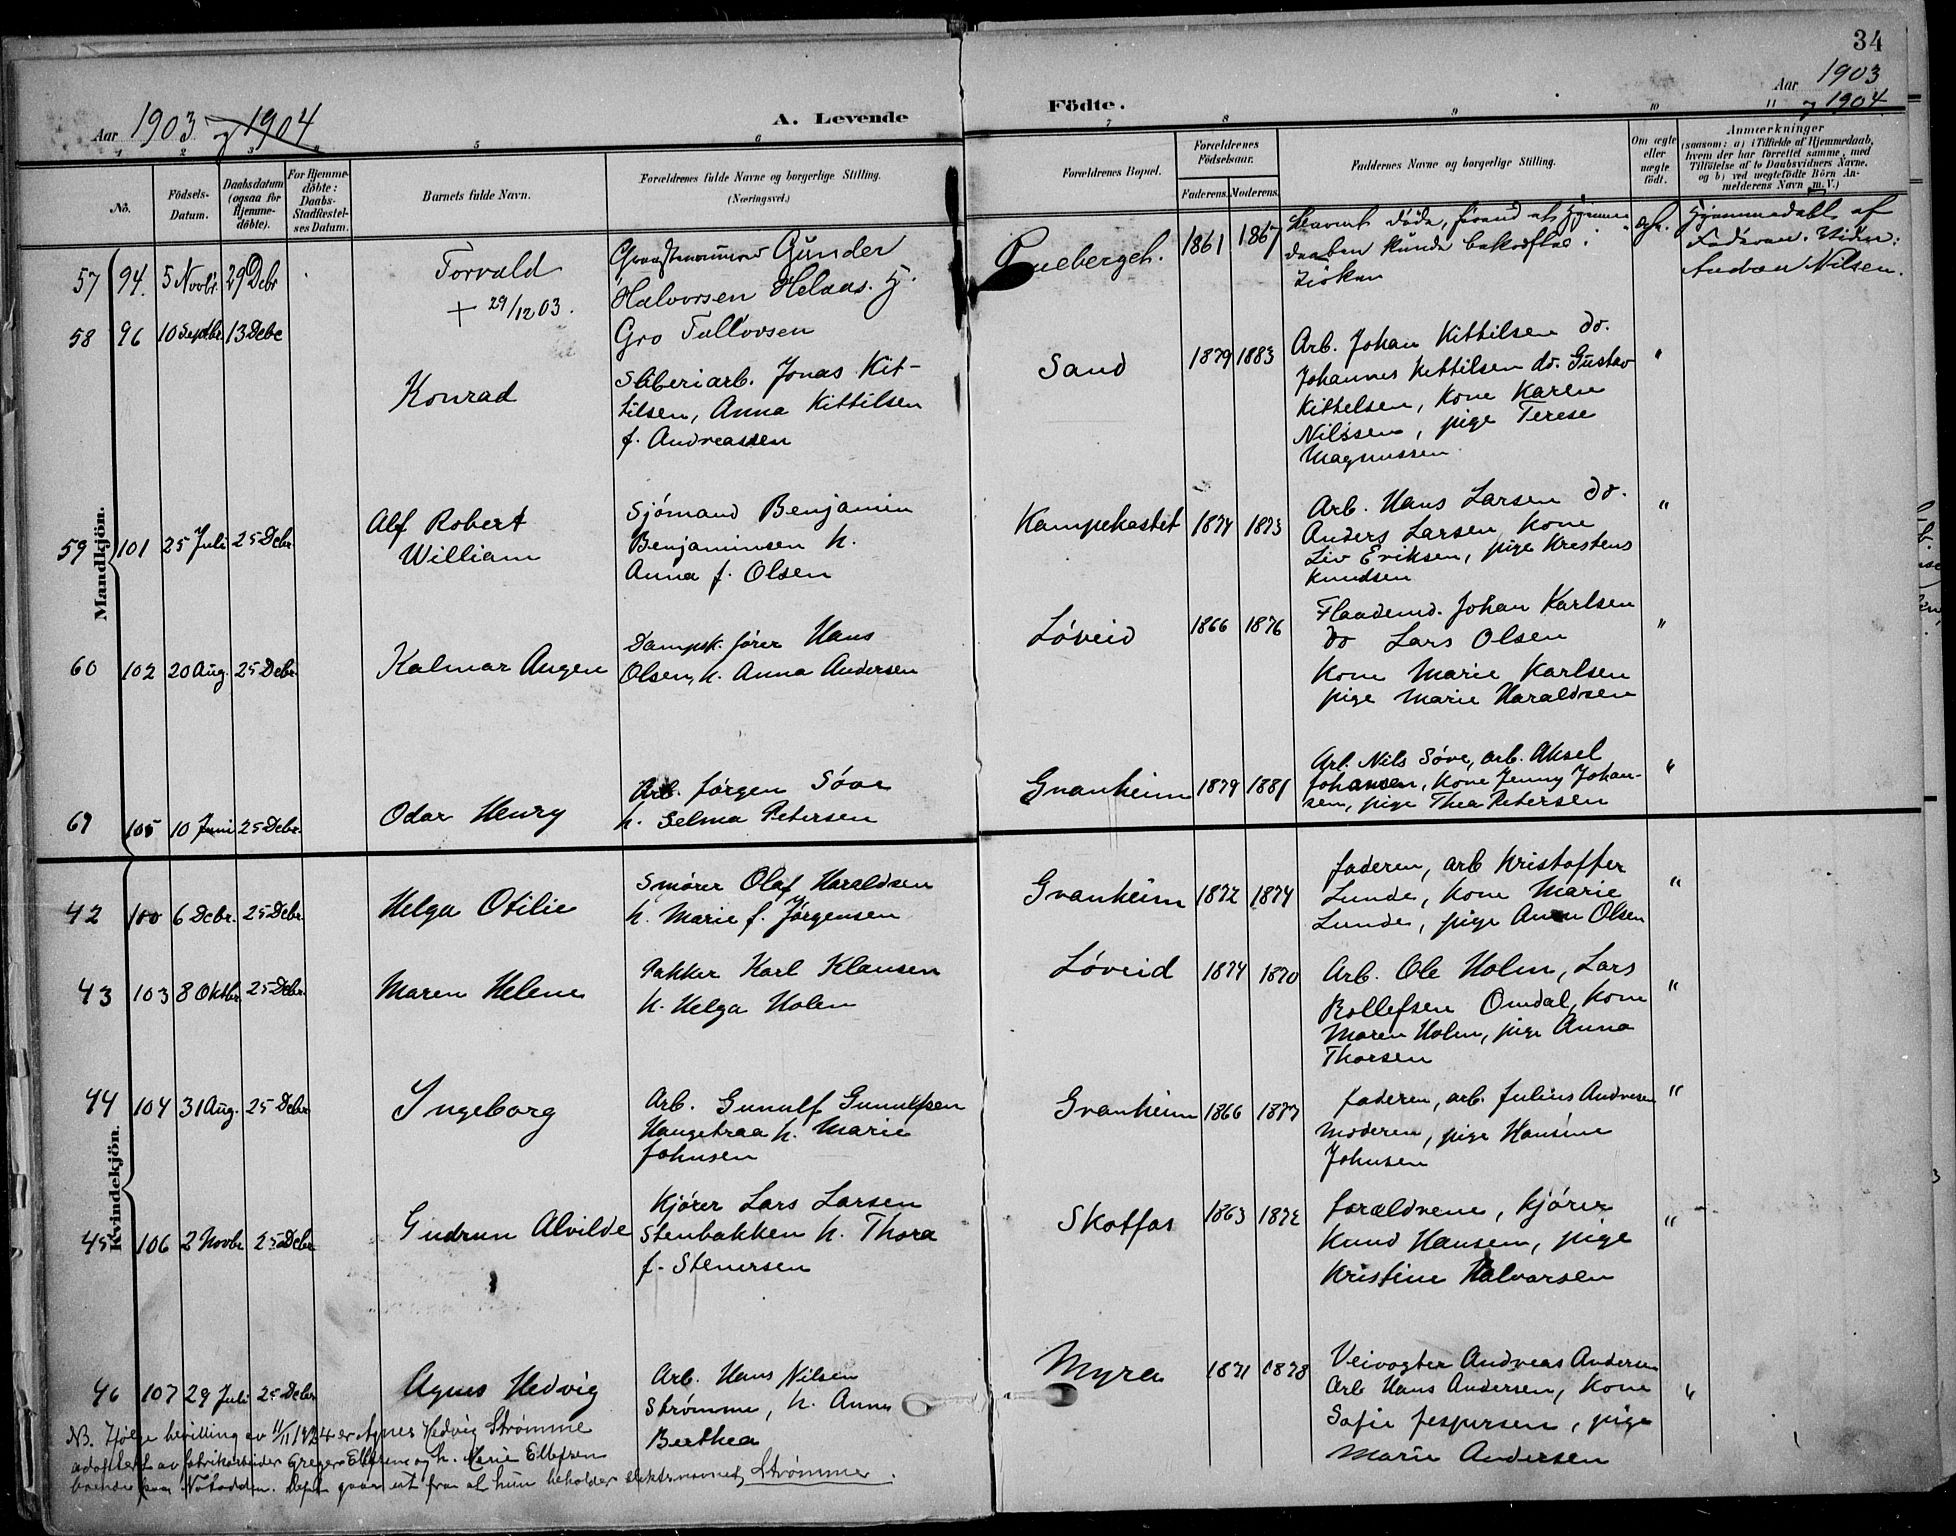 34
Aar 1903 og 1904
A. Levende
Födte.
Aar 1903
og 1904
1 2 3 5 6 7 8 9 10 11
No.
Födsels-
Datum.
Daabsdatum
(ogsaa for
Hjemme-
döbte).
For Hjemme-
döbte:
Daabs-
Stadfæstel-
ses Datum.
Barnets fulde Navn.
Forældrenes fulde Navne og borgerlige Stilling.
(Næringsvei.)
Forældrenes Bopæl.
Forældrenes
Födselsaar.
Faderens. Moderens.
Faddernes Navne og borgerlige Stilling.
Om ægte
eller
uægte
födt.
Anmærkninger
(saasom: a) i Tilfælde af Hjemmedaab,
hvem der har forrettet samme, med
Tilföielse af to Daabsvidners Navne,
og b) ved uægtefödte Börn An-
melderens Navn m. V.)
Mandkjön.
57 94. 5 Novbr. 29 Debr
Torvald
+ 29/12 03.
Gunder
Halvorsen Helaas. H.
Gro Tollovsen
1861 1867
døde, forend
daaben kunde bekræftes i
Kirken
Hjemmedøbt af
Faderen. Vidn:
Nilsen.
58 96 10 Septbr 13 Debr
Konrad
Sliberiarb. Jonas Kit-
tilsen, Anna Kittilsen
f. Andreassen
Sand
1879 1883
Arb. Johan Kittilsen do.
Johannes Kittilsen do. Gustav
Kittelsen, Kone Karen
Nilssen, pige Terese
Magnussen
"
59 101 25 Juli 25 Debr
Alf Robert
William
Sjömand Benjamin
Benjaminsen h.
Anna f. Olsen
Kampekastet
1874 1873
Arb. Hans Larsen do.
Anders Larsen, Kone
Liv Eriksen, pige Krestens
Knudsen
"
60 102 20 Aug. 25 Debr.
Kalmar Augen
Dampsk. förer Hans
Olsen, h. Anna Andersen
Löveid
1866 1876
Flaademd. Johan Karlsen
do Lars Olsen
Kone Marie Karlsen
pige Marie Haraldsen
"
61 105 10 Juni 25 Debr.
Odar Henry
Arb. Jörgen Söve
h. Selma Petersen
Gvanheim
1879 1881
Arb. Nils Söve, arb. Aksel
Johansen, Kone Jenny Johan-
sen, pige Thea Petersen
"
Kvindekjön.
42 100 6 Debr. 25 Debr.
Helga Otilie
Smörer Olaf Haraldsen
h. Marie f. Jörgensen
Gvanheim
1872 1874
faderen, arb Kristoffer
Lunde, Kone Marie
Lunde, pige Anna Olsen
"
43 103 8 Oktbr. 25 Debr.
Maren Helene
Pakker Karl Klausen
h. Helga Holm
Löveid
1874 1870
Arb. Ole Holm, Lars
Rollefsen Omdal, Kone
Maren Holm, pige Anna
Thorsen
"
44 104 31 Aug. 25 Debr
Ingeborg
Arb. Gunulf Gunulfsen
Haugetraa h. Marie
Johnsen
Gvanheim
1866 1877
faderen, arb. Julius Andresen
Moderen, pige Hansine
Johnsen
"
45 106 2 Novbr 25 Debr
Gudrun Alvilde
Kjörer Lars Larsen
Stenbakken h. Thora
f. Stenersen
Skotfos
1863 1872
forældrene, kjörer
Knud Hansen, pige
Kristine Halvorsen
"
46 107 29 Juli 25 Debr
Agnes Hedvig
Arb. Hans Nilsen
Strömme, h. Anna
Berthea
Myra
1871 1878
Veivogter Andreas Andersen
Arb Hans Andersen, Kone
Sofie Jespersen, pige
Marie Andersen
"
NB. Ifölge bevilling av 11/11 1924 er Agnes Hedvig Strömme
adoptert av fabrikarbeider Gregers Ellefsen og h. Marie Ellefsen
boende paa Notodden. Dept. gaar ut fra at hun beholder slektsnavnet Strömme.